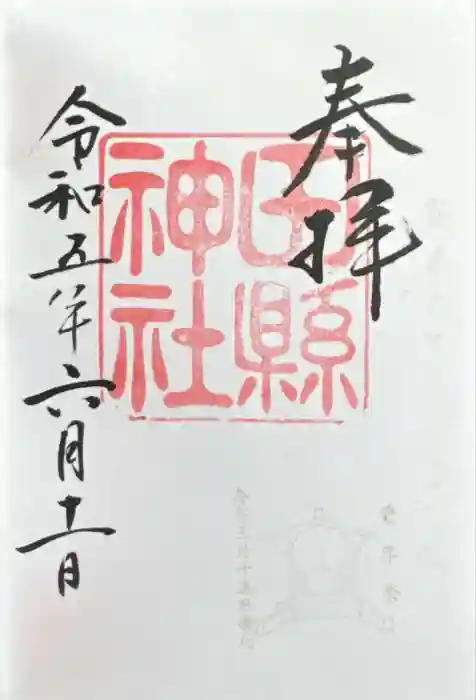 奉拝
田縣
神社
令和五年六月十一日